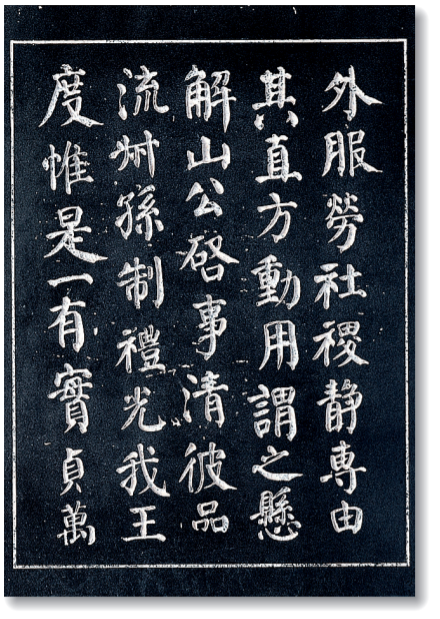 外服勞社稷静專由
其直方動用謂之懸
解山公啓事清彼品
流叔孫制禮光我王
度惟是一有實貞萬